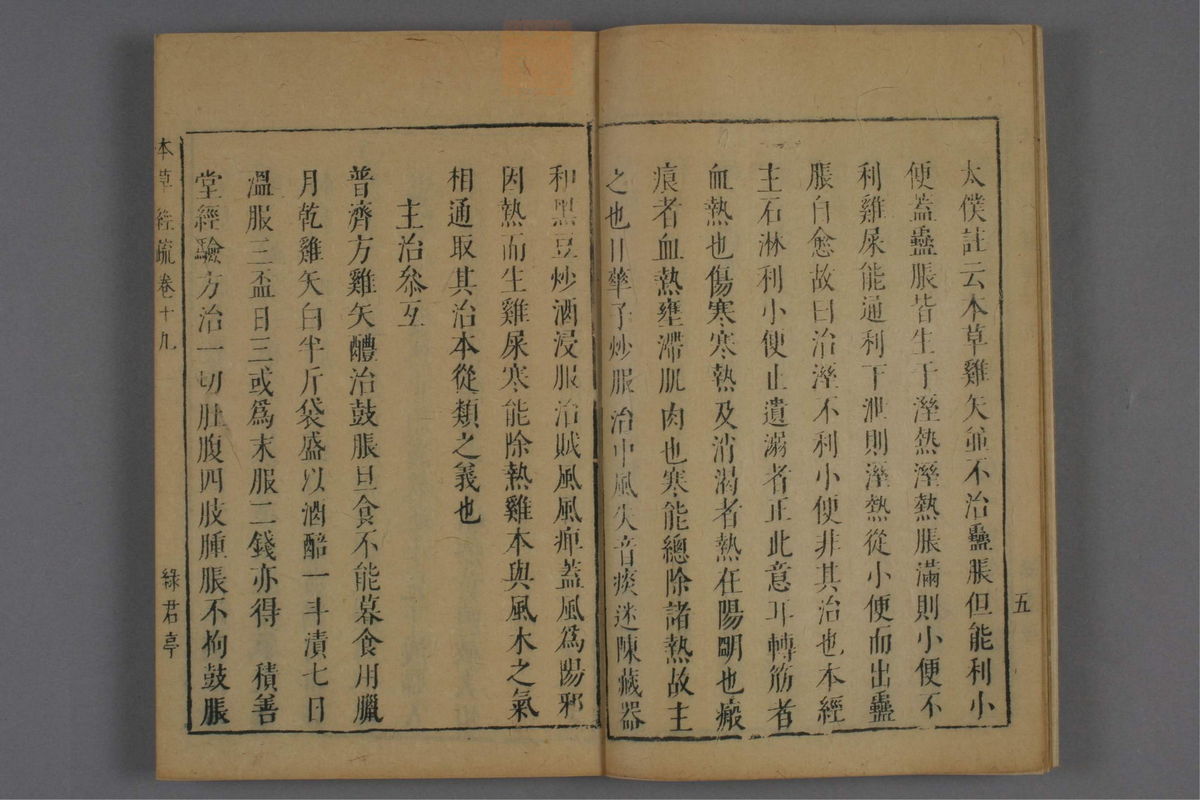 五
太僕註云本草雞矢並不治蠱脹但能利小
便蓋蠱脹皆生于溼熱溼熱脹滿則小便不
利雞屎能通利下泄則溼熱從小便而出蠱
脹自愈故曰治溼不利小便非其治也本經
主石淋利小便止遺溺者正此意耳轉筋者
血熱也傷寒寒熱及消渴者熱在陽明也瘢
痕者血熱壅滯肌肉也寒能總除諸熱故主
之也日華子炒服治中風失音痰迷陳藏器
和黑豆炒酒浸服治賊風風痺蓋風爲陽邪
因熱而生雞屎寒能除熱雞本與風木之氣
相通取其治本從類之義也
主治叅互
普濟方雞矢醴治鼓脹旦食不能暮食用臘
月乾雞矢白半斤袋盛以酒醅一斗漬七日
溫服三盃日三或爲末服二錢亦得　積善
堂經驗方治一切肚腹四肢腫脹不拘鼓脹
本草經疏卷十九
綠君亭